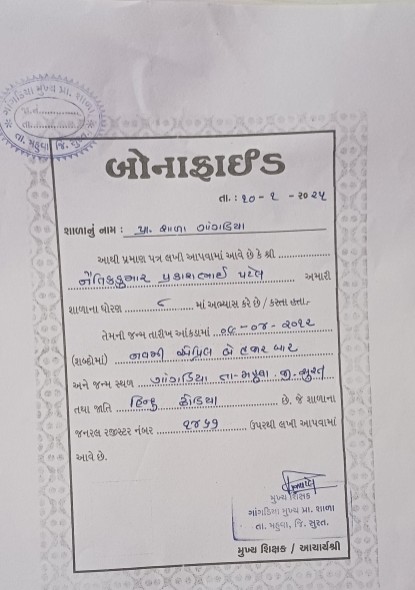 ગાંગડિયા મુખ્ય પ્રા. શાળા
તા. મહુવા, જિ. સુરત
બોનાફાઈડ
તા. : ૧૦ - ૨ - ૨૦૨૫
શાળાનું નામ : પ્રા. શાળા ગાંગડિયા
આથી પ્રમાણ પત્ર લખી આપવામાં આવે છે કે શ્રી
નૈતિકકુમાર પ્રકાશભાઈ પટેલ અમારી
શાળાના ધોરણ ૮ માં અભ્યાસ કરે છે / કરતા હતા.
તેમની જન્મ તારીખ આંકડામાં ૦૯-૦૪-૨૦૧૨
(શબ્દોમાં) નવમી એપ્રિલ બે હજાર બાર
અને જન્મ સ્થળ ગાંગડિયા તા-મહુવા જી.સુરત
તથા જાતિ હિન્દુ ઢોડિયા છે. જે શાળાના
જનરલ રજીસ્ટર નંબર ઉપરથી લખી આપવામાં
આવે છે.
મુખ્ય શિક્ષક
ગાંગડિયા મુખ્ય પ્રા. શાળા
તા. મહુવા, જિ. સુરત.
મુખ્ય શિક્ષક / આચાર્યશ્રી